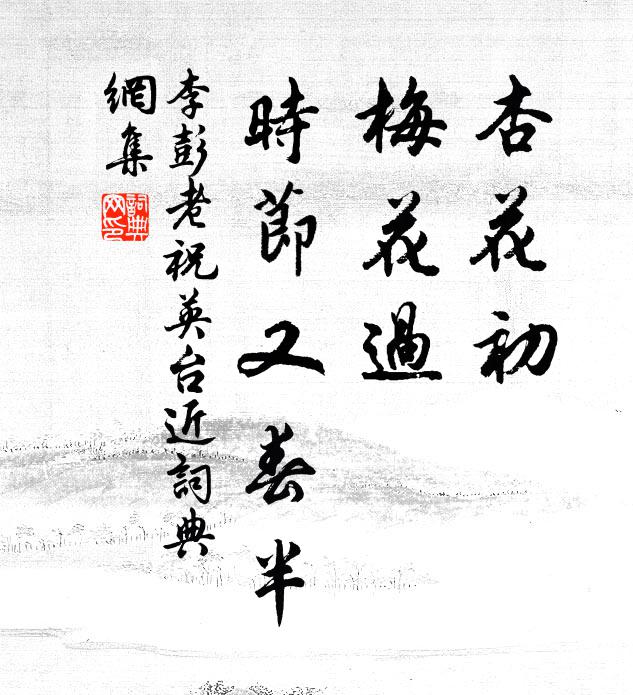 杏花初
梅花過
時節又春半
李彭老祝英台近詞典
網集
詞典
网印